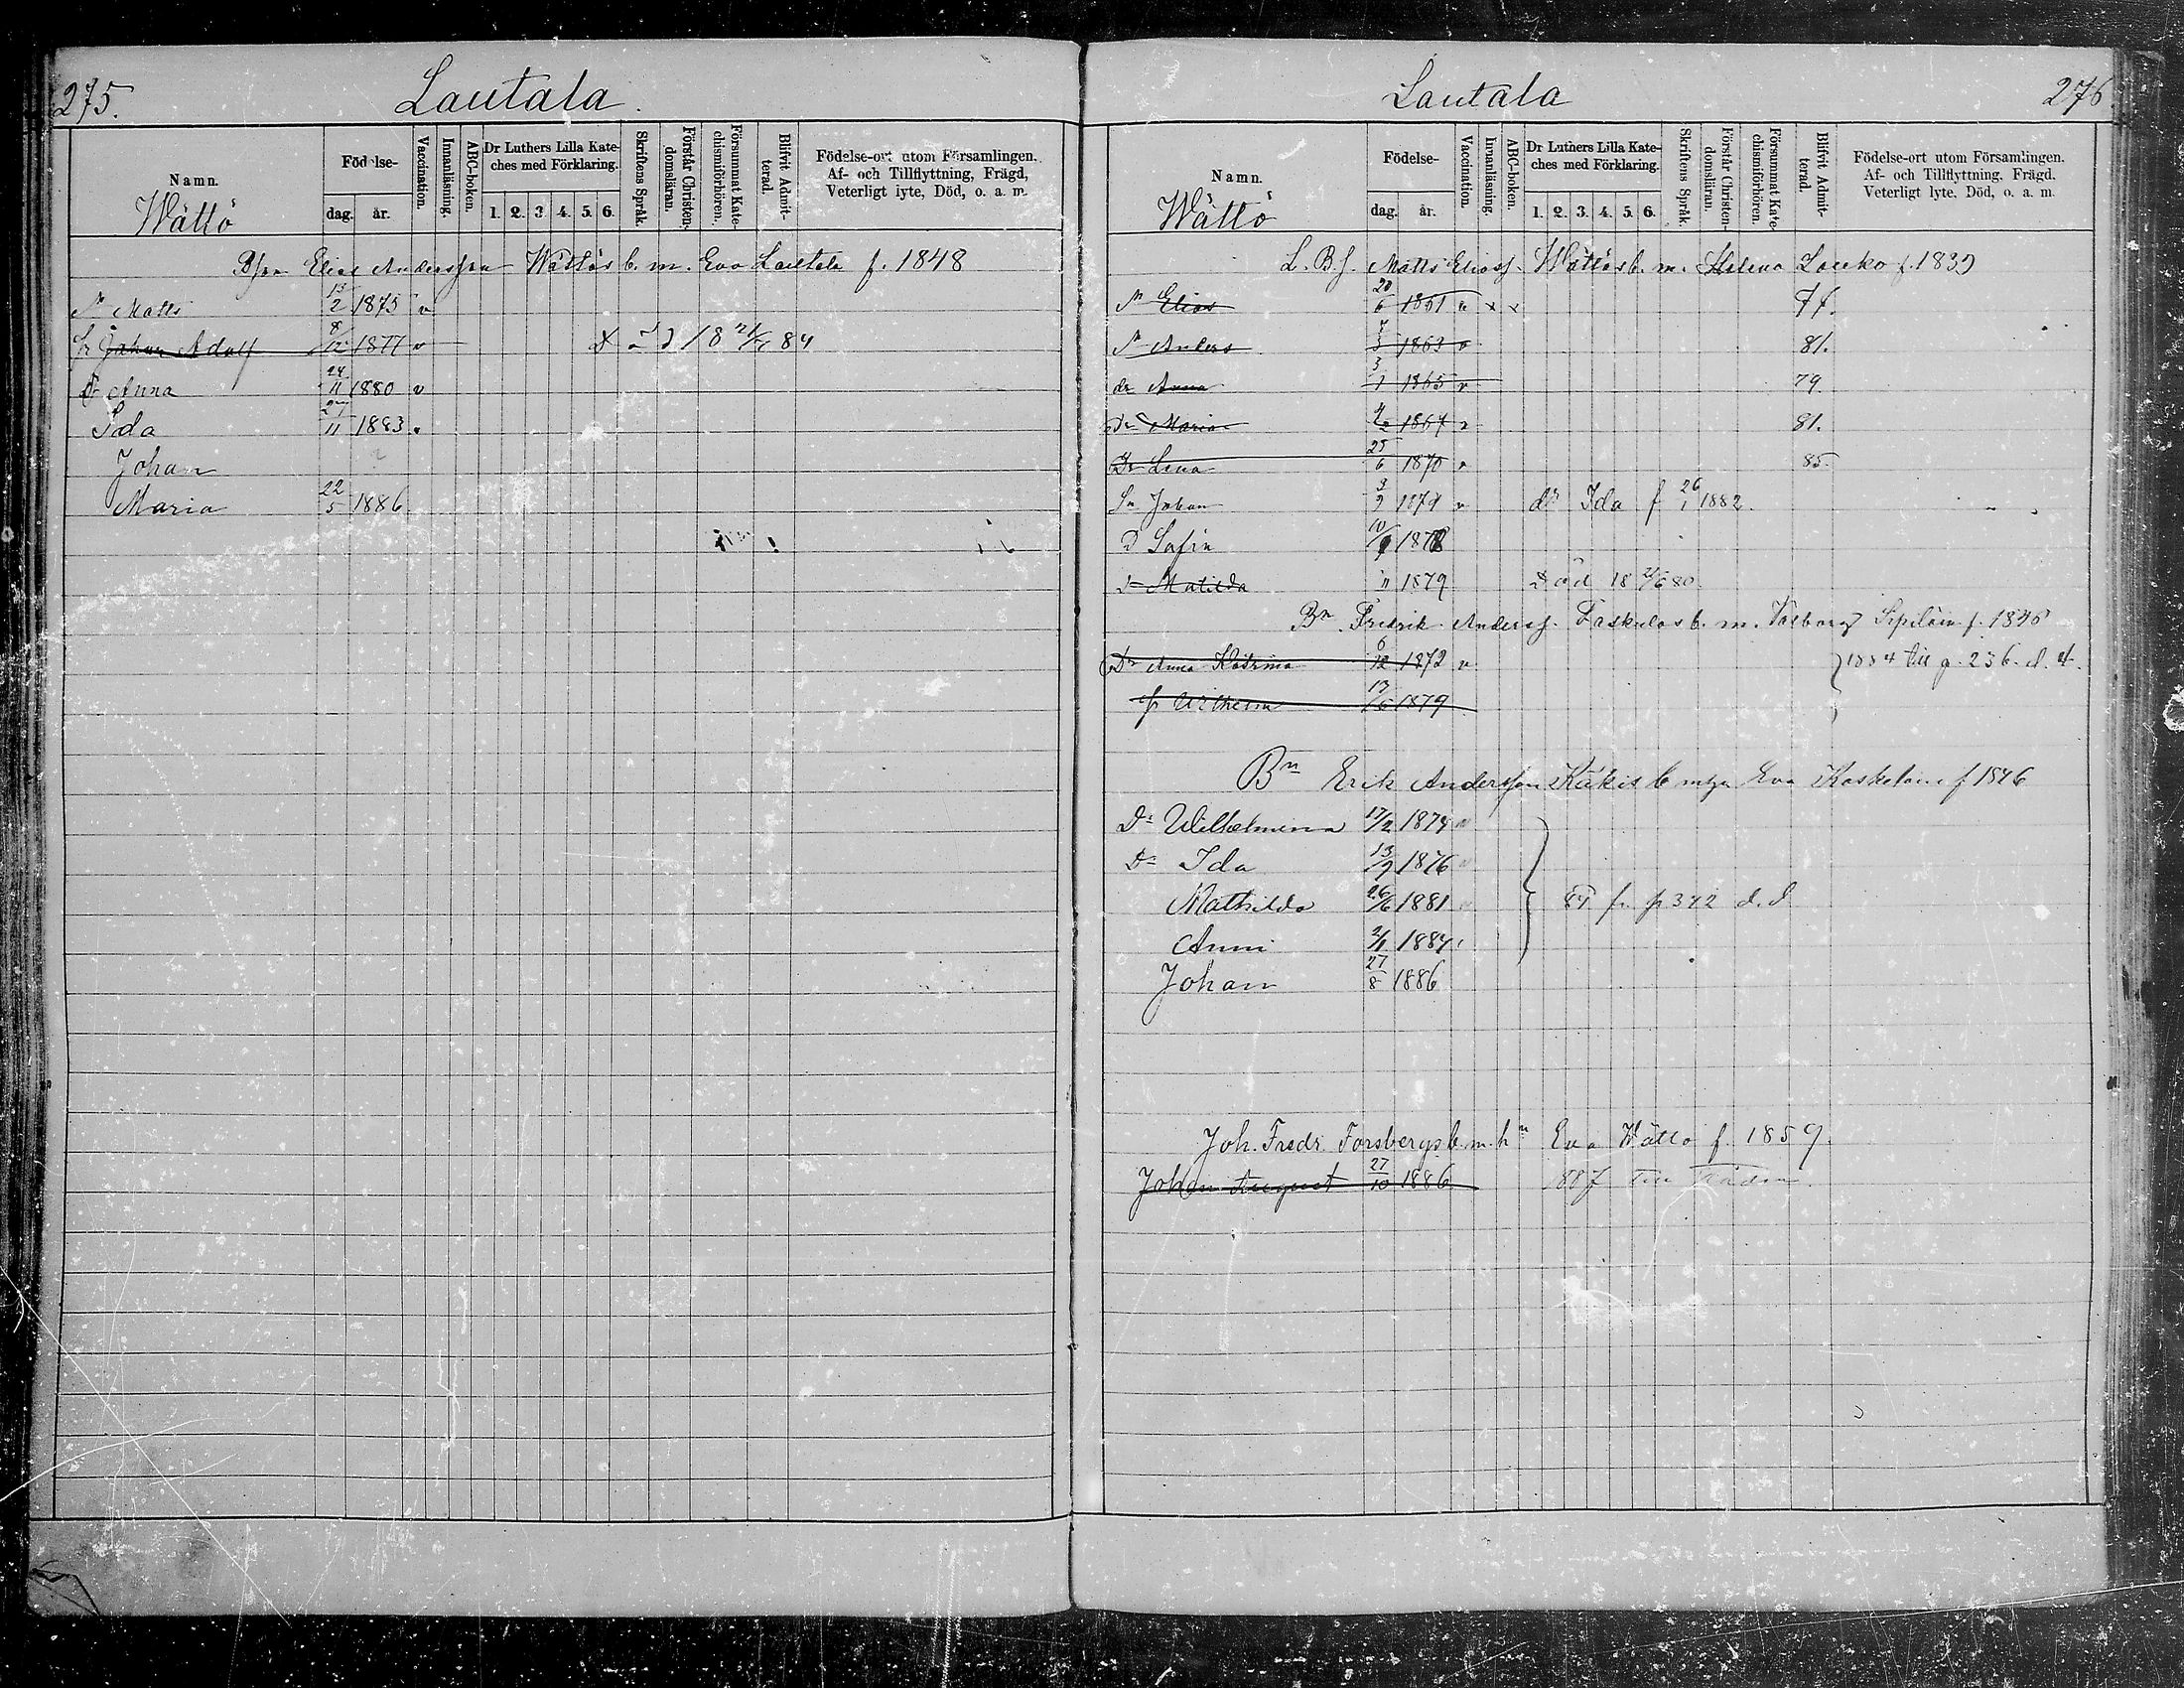 275.
Lautala
Namn.
Wättö
Födelse-
dag.
år.
Vaccination.
Innanläsning.
ABC-boken.
Dr Luthers Lilla Kate-
ches med Förklaring.
1. 2. 3. 4. 5. 6.
Skriftens Språk.
Förstår Christen-
domsläran.
Försummat Kate-
chismiförhören.
Blifvit Admit-
terad.
Födelse-ort utom Församlingen.
Af- och Tillflyttning, Frägd,
Veterligt lyte, Död, o. a. m.
Elias Andersson Wättös b. m. Eva Lautala f. 1848
Matts 13/2 1875 v
Johan Adolf 8/12 1877 v 18 21/ 84
Dr Anna 24/11 1880 v
Ida 27/11 1883
Johan
Maria 22/5 1886
Lautala
276
Namn.
Wättö
Födelse-
dag.
år.
Vaccination.
Innanläsning.
ABC-boken.
Dr Luthers Lilla Kate-
ches med Förklaring.
1. 2. 3. 4. 5. 6.
Skriftens Språk.
Förstår Christen-
domsläran.
Försummat Kate-
chismiförhören.
Blifvit Admit-
terad.
Födelse-ort utom Församlingen.
Af- och Tillflyttning, Frägd,
Veterligt lyte, Död, o. a. m.
L. B. f. Matts Eliass. Wättös b. m. Helena Louko f. 1839
Elias 20/6 1861 v x x 77.
Anders 7/3 1863 v 81.
dr Anna 3/1 1865 v 79.
Dr Maria 1867 81.
Dr Lena 25/6 1870 v 85.
Sn Johan 3/9 1874 v dr Ida f 26/1 1882.
D Sofia 10/9 1878
Matilda 11 1879 Död 18 21/6 80
Bn Fredrik Anderss. b. m. Walborg f. 1836
Dr Anna Katrina 6/12 1872 v 1884 till p. 236. d. d.
Wilhelm 13/6 1879
Bn Erik Andersson Käkis b mhu Eva f 1846
Dr Wilhelmina 17/2 1874 v
Dr Ida 13/9 1876 v
Mathilda 26/6 1881 84 fr p 342 d. d
Anni 2/1 1884
Johan 27/8 1886
Joh. Fredr. Forsbergs b. m. hn Eva Wättö f. 1859.
Johan August 27/10 1886 1887 till